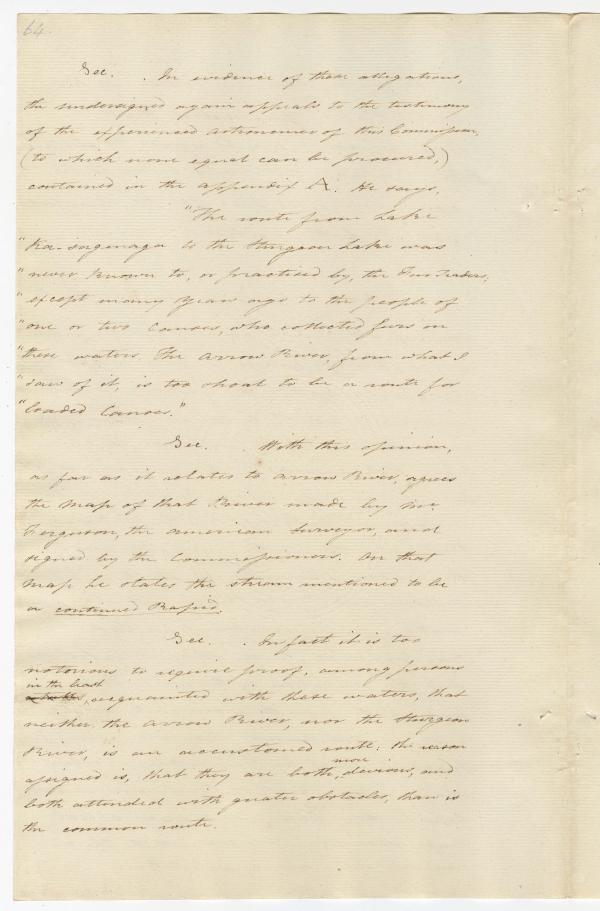 64.
Sec. . In evidence of these allegations,
the undersigned again appeals to the testimony
of the experienced astronomer of this Commission,
(to which none equal can be procured,)
contained in the appendix A. He says,
"The route from Lake
"Ka-saginaga to the Sturgeon Lake was
"never known to, or practised by, the Fur Traders,
"except many years ago to the people of
"one or two Canoes, who collected furs on
"these waters. The Arrow River, from what I
"saw of it, is too shoal to be a route for
"loaded Canoes."
Sec. . With this opinion,
as far as it relates to Arrow River, agrees
the Map of that River made by Mr.
Ferguson, the American Surveyor, and
signed by the Commissioners. On that
Map he states the stream mentioned to be
a continued Rapid.
Sec. . In fact it is too
notorious to require proof, among persons
in the least
acquainted with these waters, that
neither the Arrow River, nor the Sturgeon
River, is an accustomed route; the reason
more
assigned is, that they are both, devious, and
both attended with greater obstacles, than is
the common route.